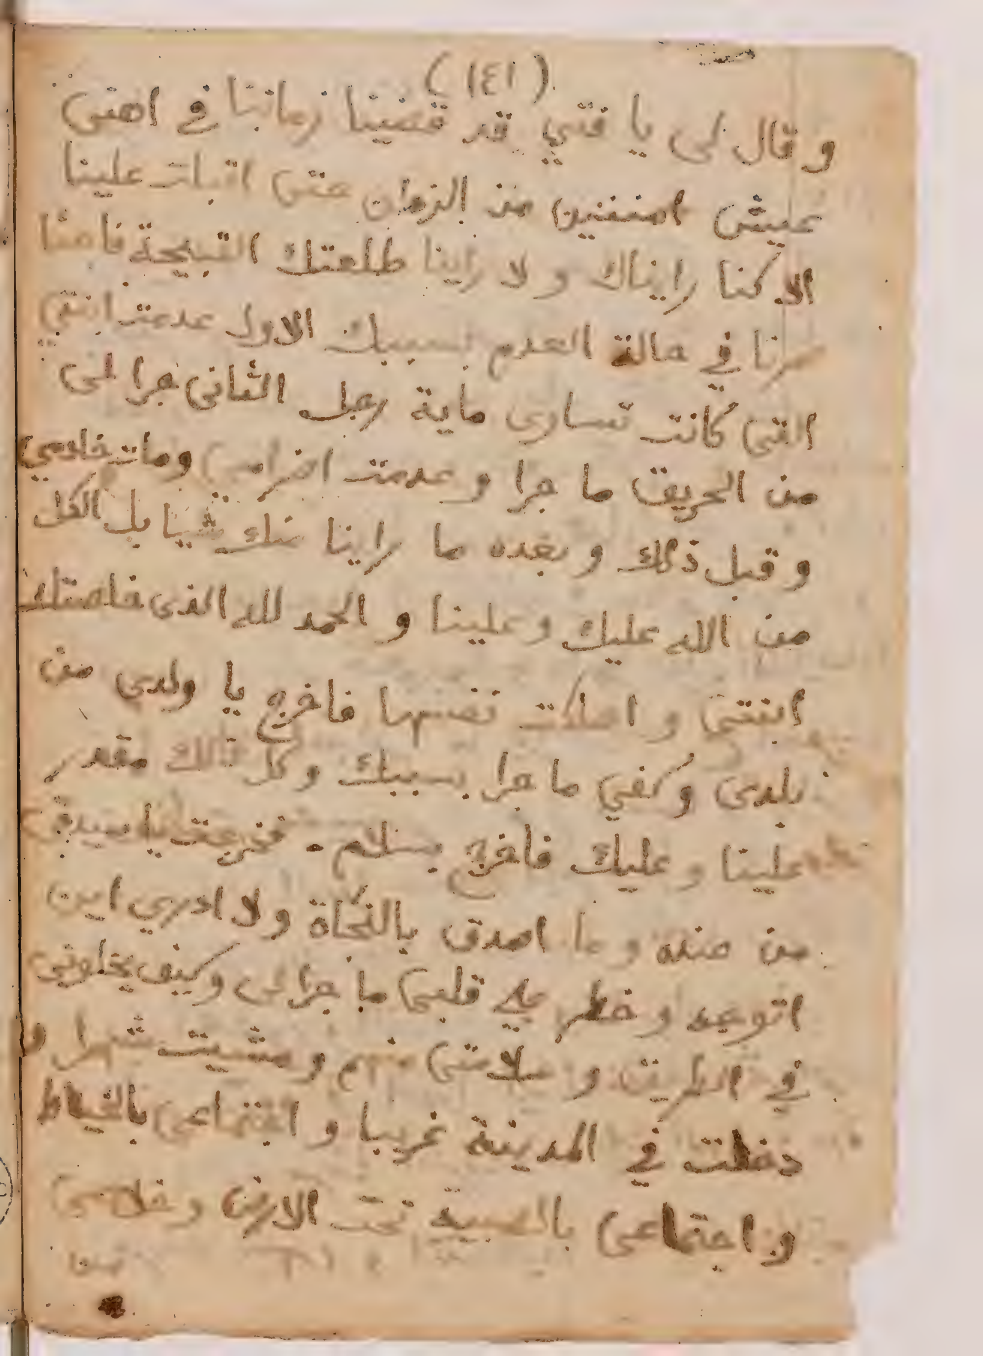 (١٤١)
وقال لى يا فتي قد قضينا زماننا في اهنى
عيش امنين من الزمان حتى اقبلت علينا
الا كنا رايناك ولا راينا طلعتك القبيحة فاحنا
صرنا في حالة العدم بسببك الاول عدمت ابنتي
التى كانت تساوى ماية رجل الثانى جرا لى
من الحريق ما جرا وعدمت اضراسي ومات خادمي
وقبل ذلك وبعده ما راينا منك شيا بل الكل
من الله عليك وعلينا والحمد لله الذى خلصتك
ابنتى واهلكت نفسها فاخرج يا ولدى من
بلدى وكفي ما جرا بسببك وكل ذالك مقدر
علينا وعليك فاخرج بسلام. فخرجت يا سيدتى
من عنده وما اصدق بالنجاة ولا ادري اين
اتوجه وخطر على قلبى ما جرا لى وكيف يخلونى
في الطريق وسلامتى منهم ومشيت شهرا و
دخلت في المدينة غريبا واجتماعى بالخياط
واجتماعى بالصبية تحت الارض وخلاصى